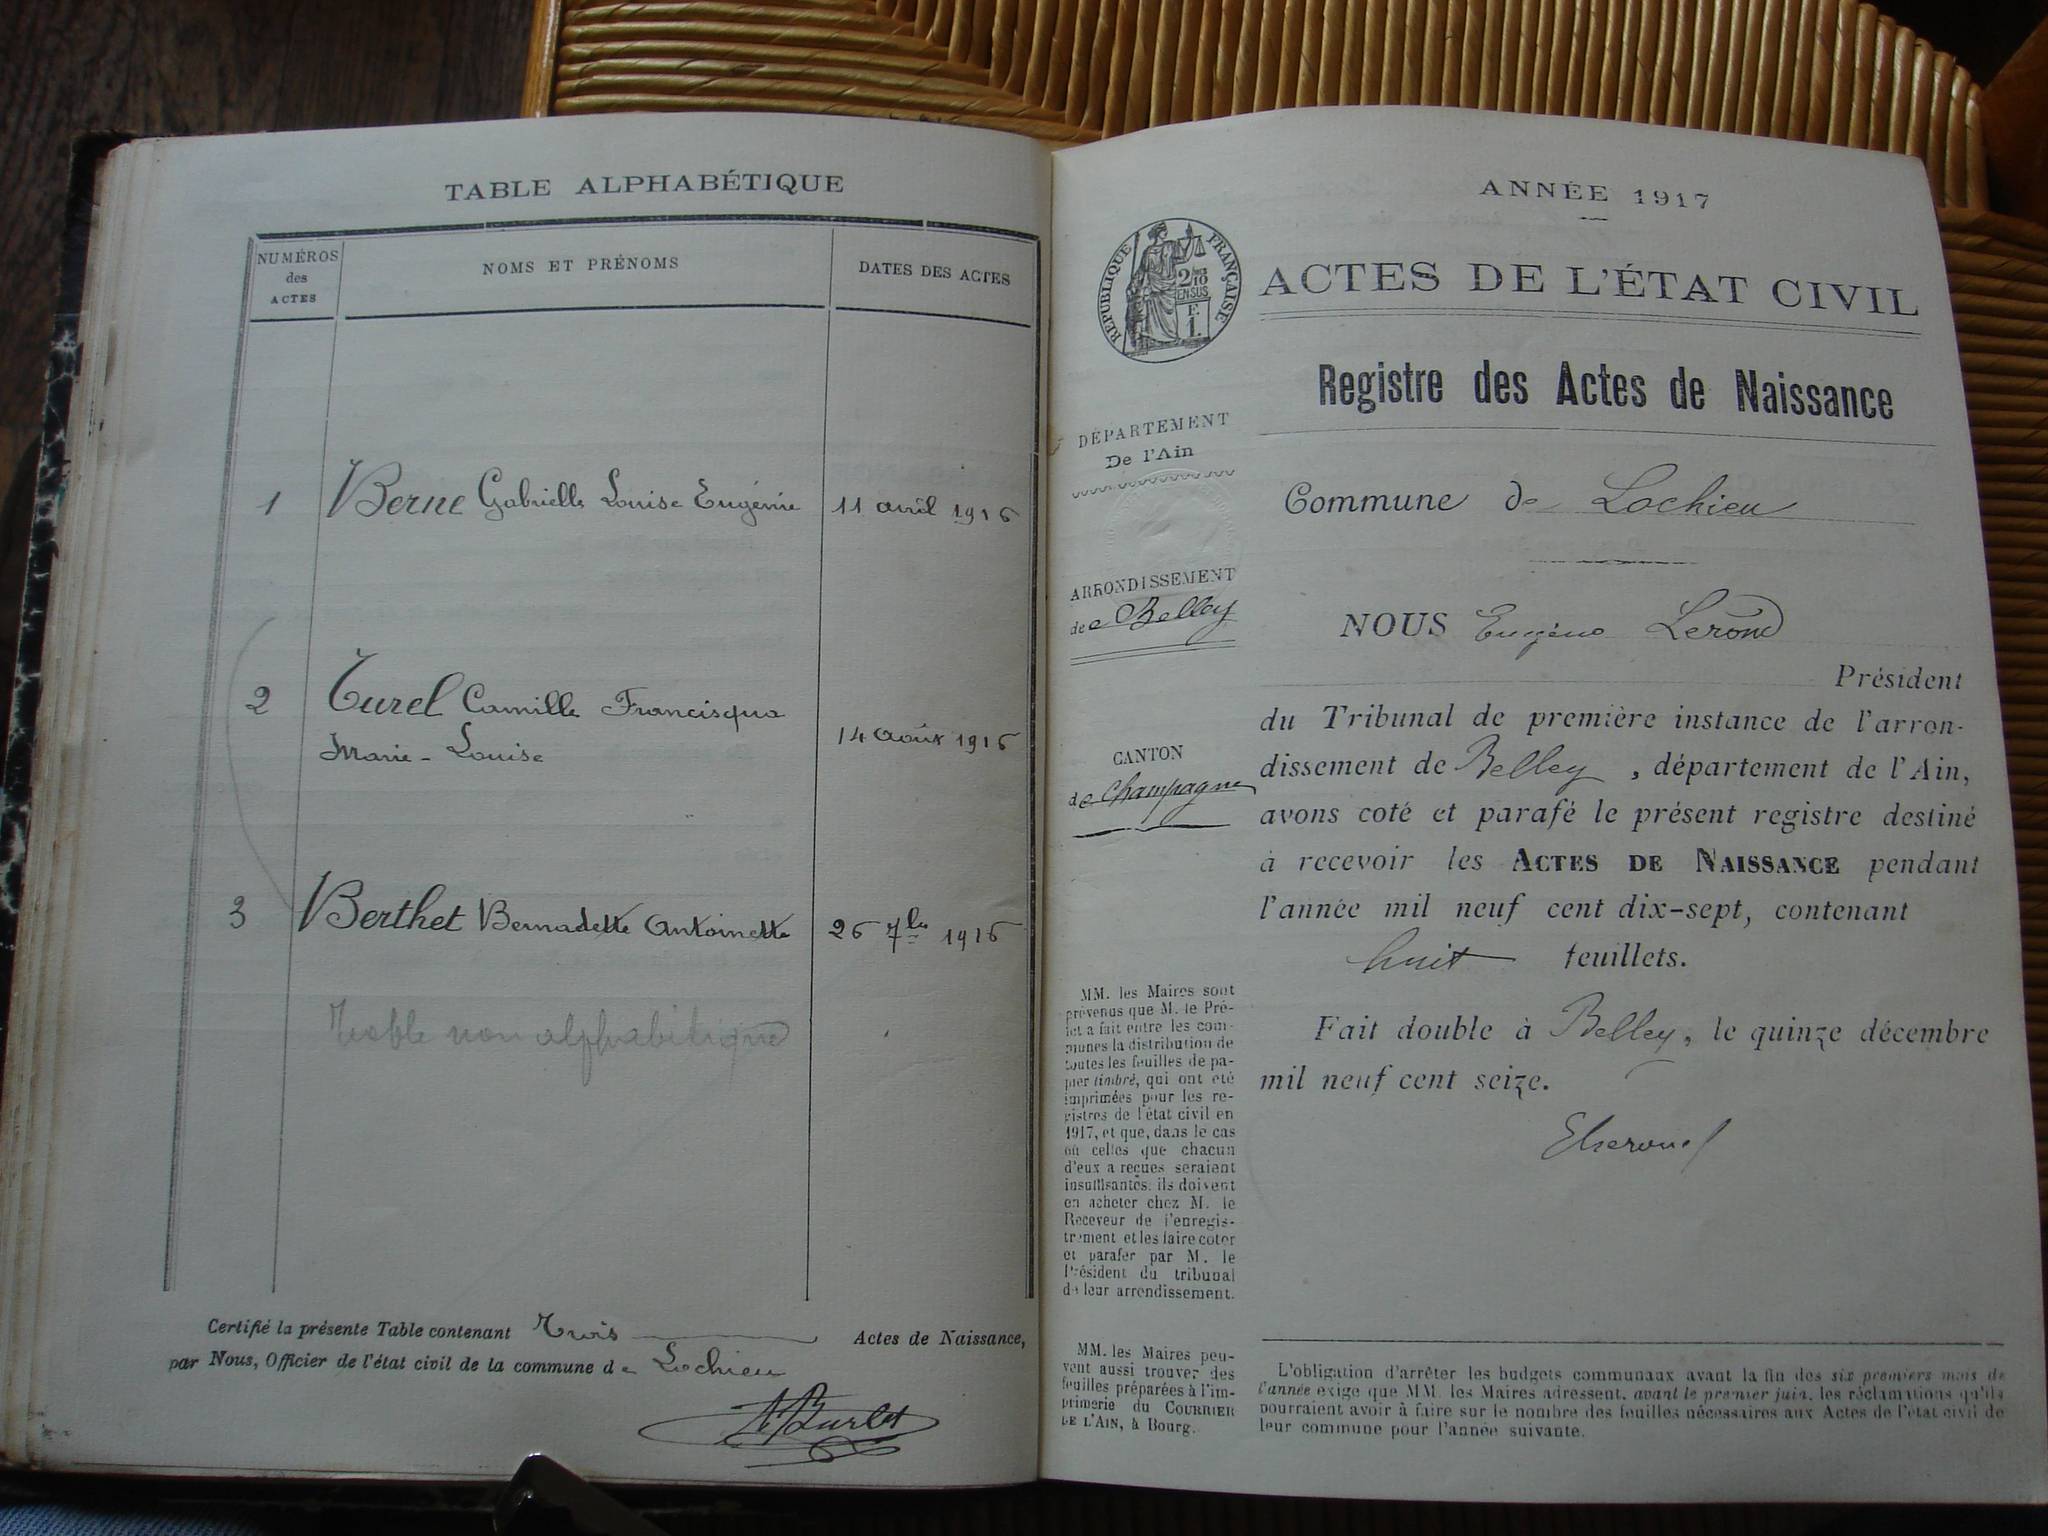 TABLE ALPHABÉTIQUE
NUMÉROS
des
ACTES
NOMS ET PRÉNOMS
DATES DES ACTES
1 Berne Gabrielle Louise Eugénie 11 avril 1916
2 Turel Camille Francisqua
Marie-Louise 14 août 1916
3 Berthet Bernadette Antoinette 26 7bre 1916
Table non alphabétique
Certifié la présente Table contenant Trois Actes de Naissance,
par Nous, Officier de l'état civil de la commune de Lochieu
Burlet
ANNÉE 1917
RÉPUBLIQUE FRANÇAISE
2/10
EN SUS
F.
1.
ACTES DE L'ÉTAT CIVIL
Registre des Actes de Naissance
DÉPARTEMENT
De l'Ain
ARRONDISSEMENT
de Belley
CANTON
de Champagne
MM. les Maires sont
prévenus que M. le Pré-
fet a fait entre les com-
munes la distribution de
toutes les feuilles de pa-
pier timbré, qui ont été
imprimées pour les re-
gistres de l'état civil en
1917, et que, dans le cas
où celles que chacun
d'eux a reçues seraient
insuffisantes, ils doivent
en acheter chez M. le
Receveur de l'enregis-
trement et les faire coter
et parafer par M. le
Président du tribunal
de leur arrondissement.
MM. les Maires peu-
vent aussi trouver des
feuilles préparées à l'im-
primerie du COURRIER
DE L'AIN, à Bourg.
Commune de Lochieu
NOUS Eugène Lerond
Président
du Tribunal de première instance de l'arron-
dissement de Belley, département de l'Ain,
avons coté et parafé le présent registre destiné
à recevoir les ACTES DE NAISSANCE pendant
l'année mil neuf cent dix-sept, contenant
huit feuillets.
Fait double à Belley, le quinze décembre
mil neuf cent seize.
L'obligation d'arrêter les budgets communaux avant la fin des six premiers mois de
l'année exige que MM. les Maires adressent, avant le premier juin, les réclamations qu'ils
pourraient avoir à faire sur le nombre des feuilles nécessaires aux Actes de l'état civil de
leur commune pour l'année suivante.